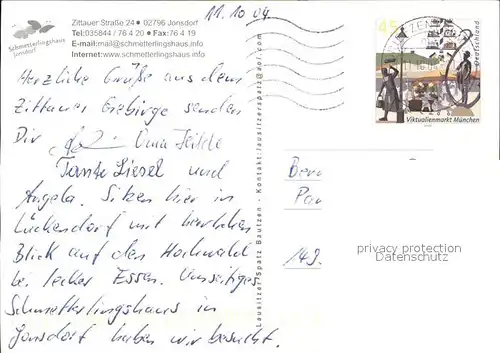 Schmetterlingshaus
Jonsdorf
Zittauer Straße 24 • 02796 Jonsdorf
Tel:035844 / 76 4 20 • Fax:76 4 19
E-mail:mail@schmetterlingshaus.info
Internet:www.schmetterlingshaus.info
11.10.04
45
Deutschland
Viktualienmarkt München
Herzliche Grüße aus dem
Zittauer Gebirge senden
Dir Oma
Tante Liesel und
Angela. Sitzen hier in
Lückendorf mit herrlichem
Blick auf den Hochwald
bei lecker Essen. Umseitiges
Schmetterlingshaus in
Jonsdorf haben wir besucht.
Lausitzer Spatz Bautzen - Kontakt: lausitzerspatz@aol.com
149
privacy protection
Datenschutz